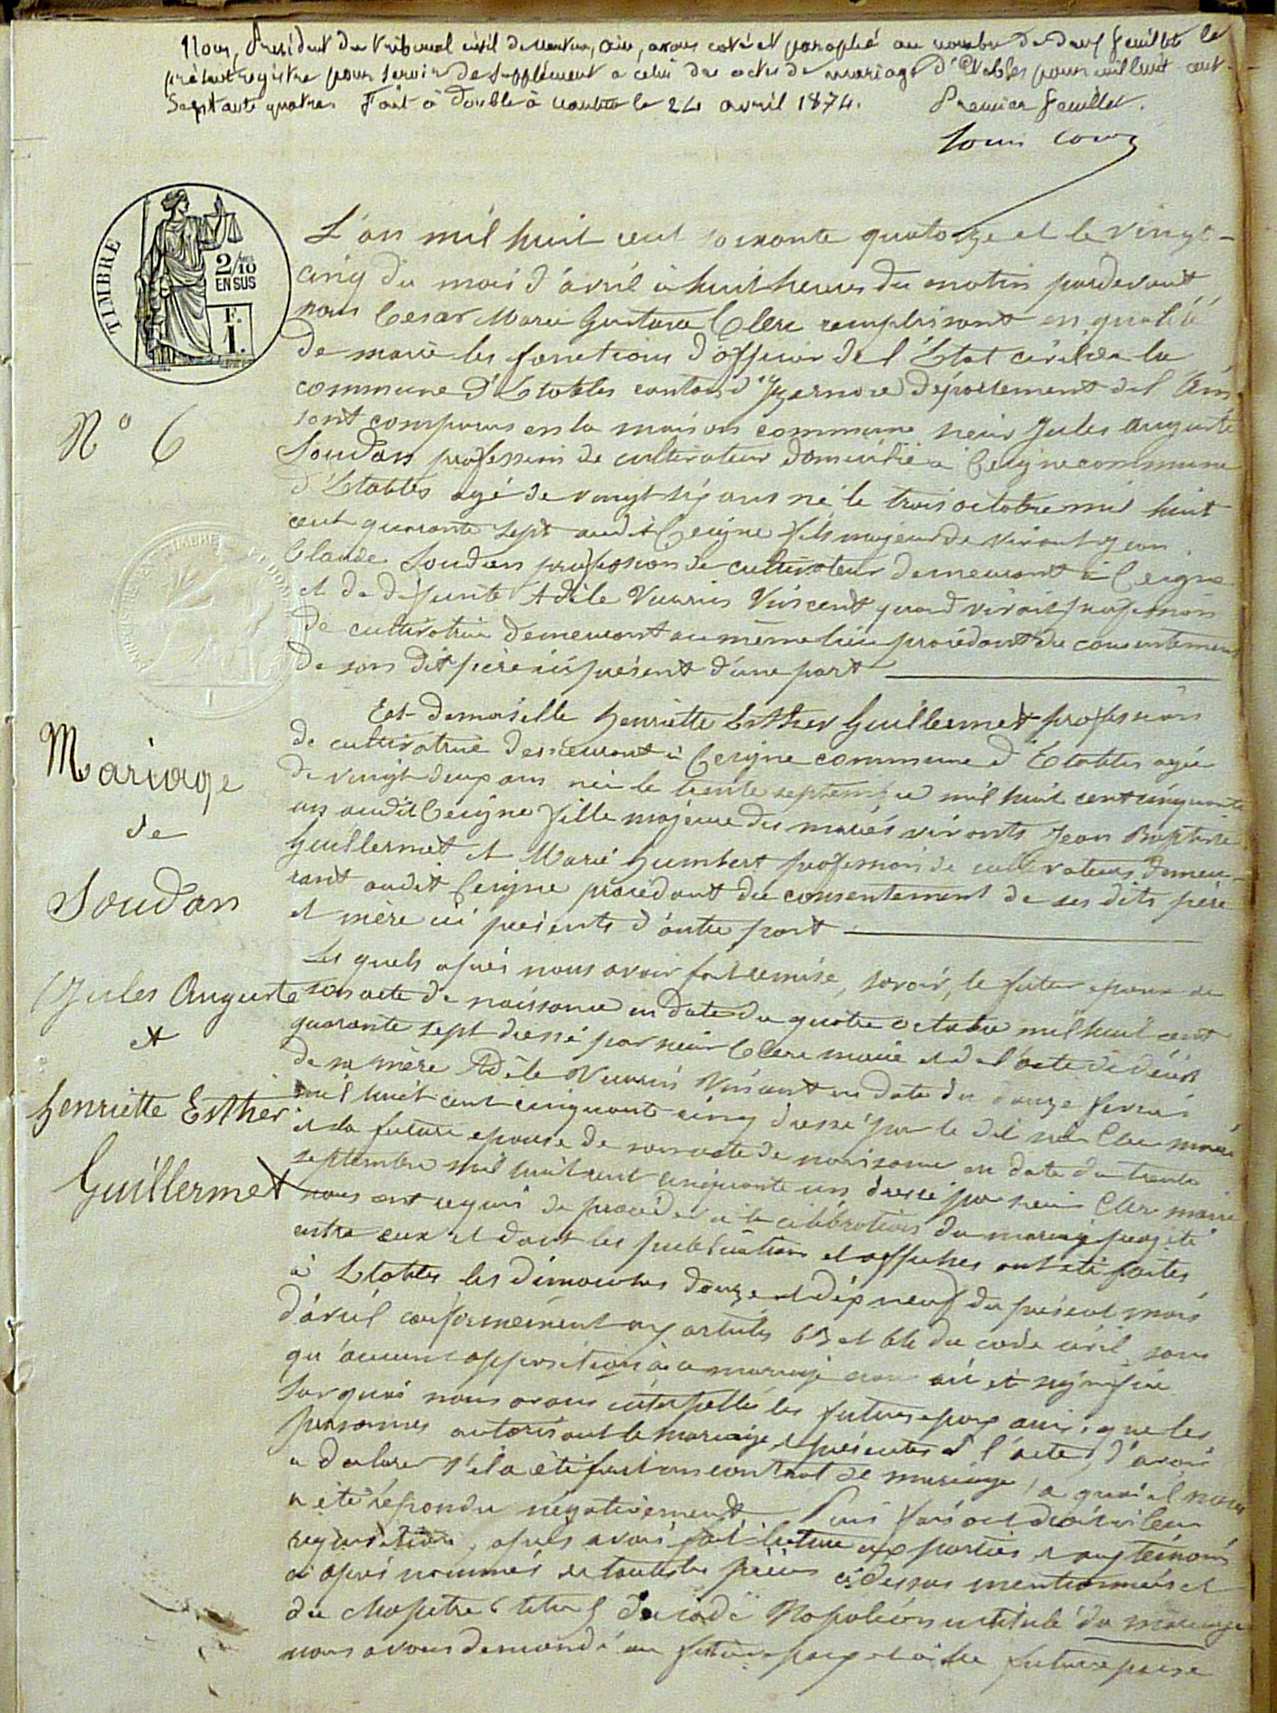 Nous, Président du tribunal civil de Nantua, Ain, avons coté et paraphé au nombre de deux feuillets le
présent registre pour servir de supplément a celui des actes de mariage d'Etables pour mil huit cent
Septante quatre. Fait à double à Nantua le 24 avril 1874. Premier feuillet.
TIMBRE
2/10
EN SUS
F.
1.
L'an mil huit cent soixante quatorze et le vingt-
cinq du mois d'avril à huit heures du matin pardevant
nous César Marie Gustave Clerc remplissant en qualité
de maire les fonctions d'officier de l'Etat civil de la
commune d'Etables canton d'Izernore département de l'Ain
sont comparus en la maison commune sieur Jules Auguste
Soudan profession de cultivateur domicilié à Ceigne commune
d'Etables agé de vingt six ans né le trois octobre mil huit
cent quarante sept audit Ceigne fils majeur de vivant
Claude Soudan profession de cultivateur demeurant à Ceigne
et de défunte Adèle Vincent quand vivait profession
de cultivatrice demeurant au même lieu procédant du consentement
de son dit père ici présent d'une part
Et demoiselle Henriette Esther Guillermet profession
de cultivatrice demeurant à Ceigne commune d'Etables agée
de vingt deux ans née le trente septembre mil huit cent cinquante
un audit Ceigne fille majeure des mariés vivants Jean Baptiste
Guillermet et Marie Humbert profession de cultivateurs demeu-
rant audit Ceigne procédant du consentement de ses dits père
et mère ici présents d'autre part
Les quels après nous avoir fait remise, savoir, le futur epoux de
son acte de naissance en date du quatre octobre mil huit cent
quarante sept dressé par sieur Clerc maire et de l'acte de décès
de sa mère Adèle Vincent en date du fevrier
mil huit cent cinquante cinq dressé par le dit sieur Clerc maire
et la future epouse de son acte de naissance en date du trente
septembre mil huit cent cinquante un dressé par sieur Clerc maire
nous ont requis de procéder à la célébration du mariage projeté
entre eux et dont les publications et affiches ont été faites
à Etables les dimanches douze et dix neuf du présent mois
d'avril conformément aux articles 63 et 64 du code civil sans
qu'aucune opposition à ce mariage nous ait été signifiée
Sur quoi nous avons interpellé les futurs epoux ainsi que les
personnes autorisant le mariage et présentes à l'acte, d'avoir
a déclarer s'il a été fait un contrat de mariage, a quoi il nous
a été répondu négativement Puis faisant droit à leur
requisition, après avoir fait lecture aux parties et aux témoins
ci après nommés de toutes les pièces ci dessus mentionnées et
du chapitre 6 titre 5 du code Napoléon intitulé du mariage
nous avons demandé au futur epoux et à la future epouse
N° 6
Mariage
de
Soudan
Jules Auguste
et
Henriette Esther
Guillermet